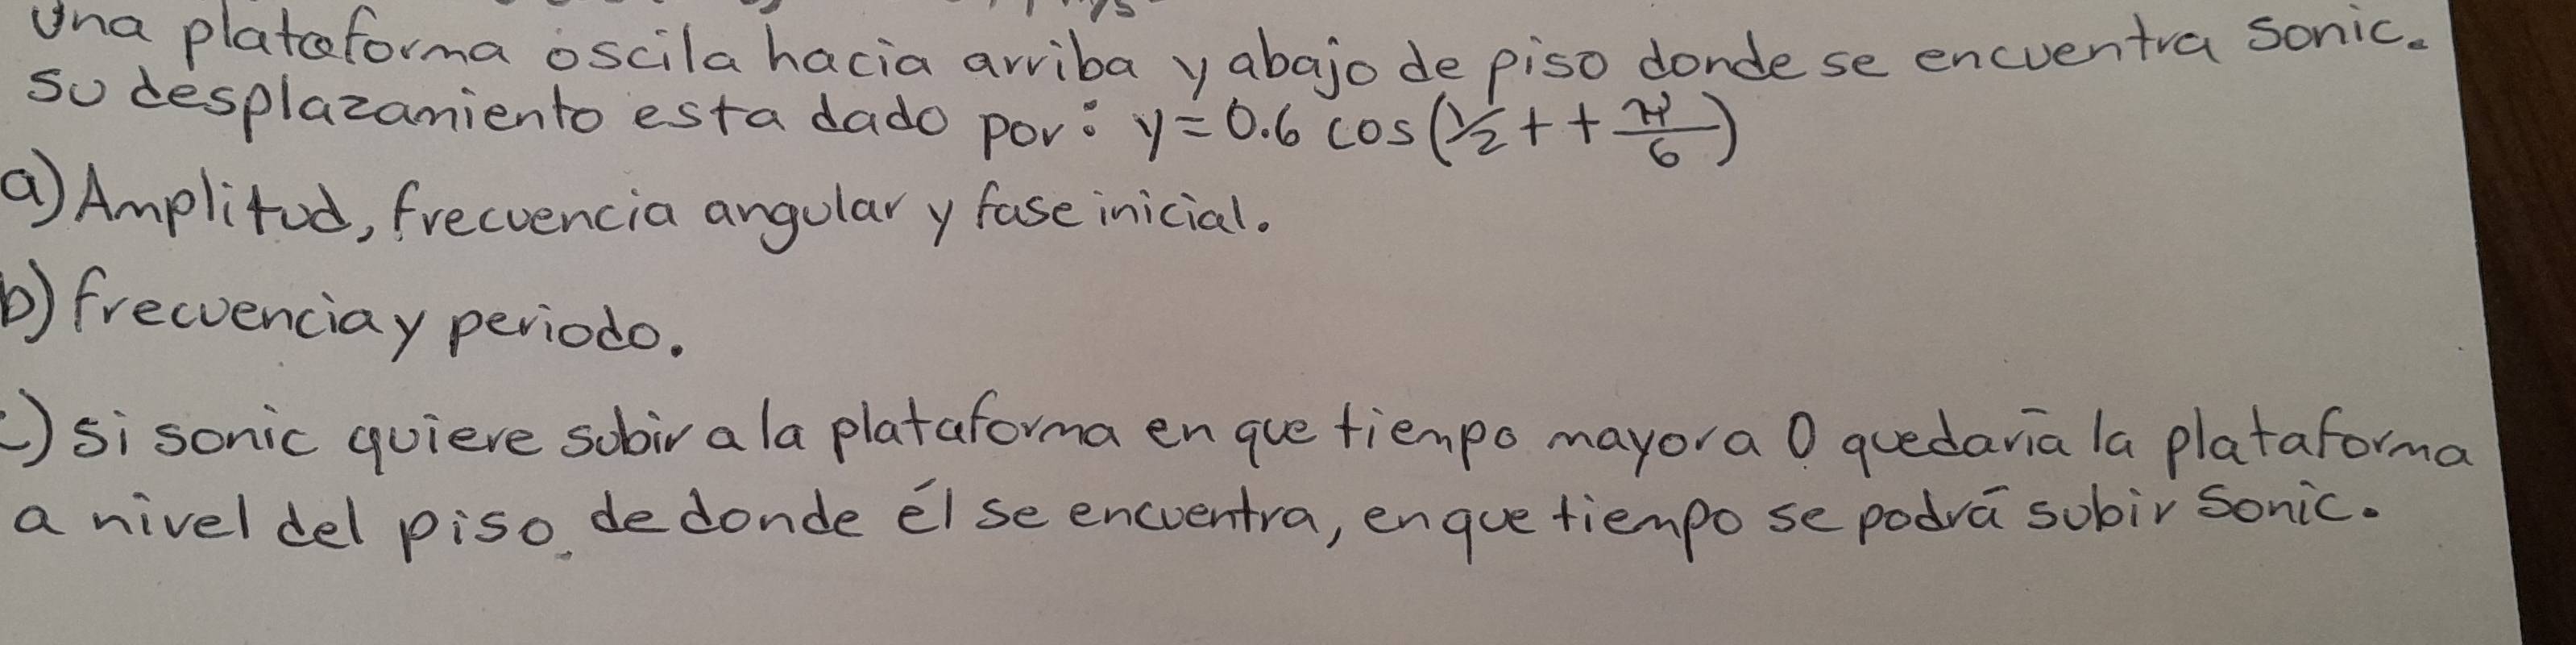 Una plataforma oscila hacia arriba y abajo de piso donde se encuentra sonic.
Su desplazamiento esta dado por: y=0.6 cos(1/2t + π/6)
a) Amplitud, frecuencia angular y fase inicial.
b) frecuencia y periodo.
c) si sonic quiere subir a la plataforma en que tiempo mayor a 0 quedaría la plataforma
a nivel del piso de donde él se encuentra, en que tiempo se podrá subir Sonic.